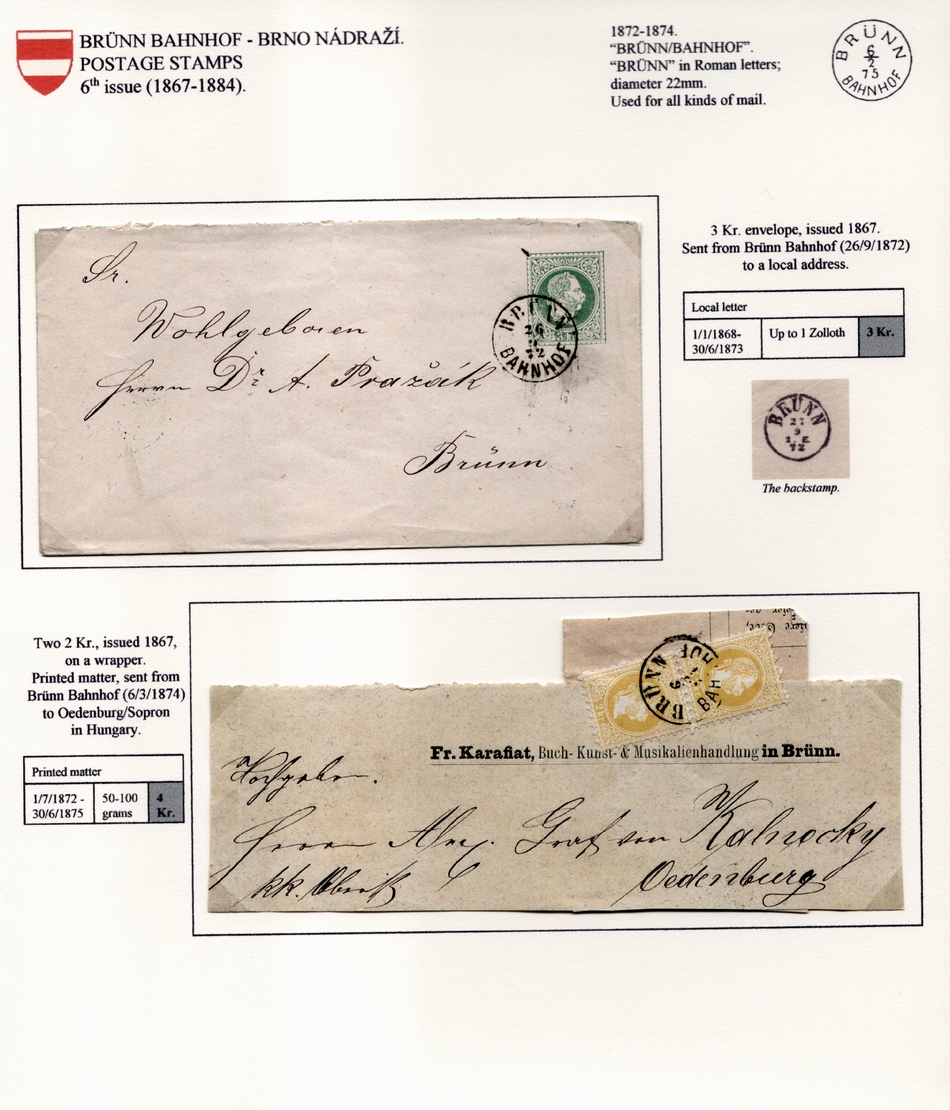 BRÜNN BAHNHOF - BRNO NÁDRAŽÍ.
POSTAGE STAMPS
6th issue (1867-1884).
1872-1874.
“BRÜNN/BAHNHOF”.
“BRÜNN” in Roman letters;
diameter 22mm.
Used for all kinds of mail.
BRÜNN
6
2
75
BAHNHOF
Sr.
Wohlgeboren
Herrn Dr. A. Pražák
Brünn
BRÜNN
26
9
72
BAHNHOF
3 Kr. envelope, issued 1867.
Sent from Brünn Bahnhof (26/9/1872)
to a local address.
Local letter
1/1/1868- Up to 1 Zolloth 3 Kr.
30/6/1873
BRÜNN
27
9
1. E
72
The backstamp.
Two 2 Kr., issued 1867,
on a wrapper.
Printed matter, sent from
Brünn Bahnhof (6/3/1874)
to Oedenburg/Sopron
in Hungary.
Printed matter
1/7/1872 - 50-100 4
30/6/1875 grams Kr.
BRÜNN
BAHNHOF
Fr. Karafiat, Buch- Kunst- & Musikalienhandlung in Brünn.
Hochgebor.
Herrn Alex. Graf von Kalnocky
kk. Oberst Oedenburg